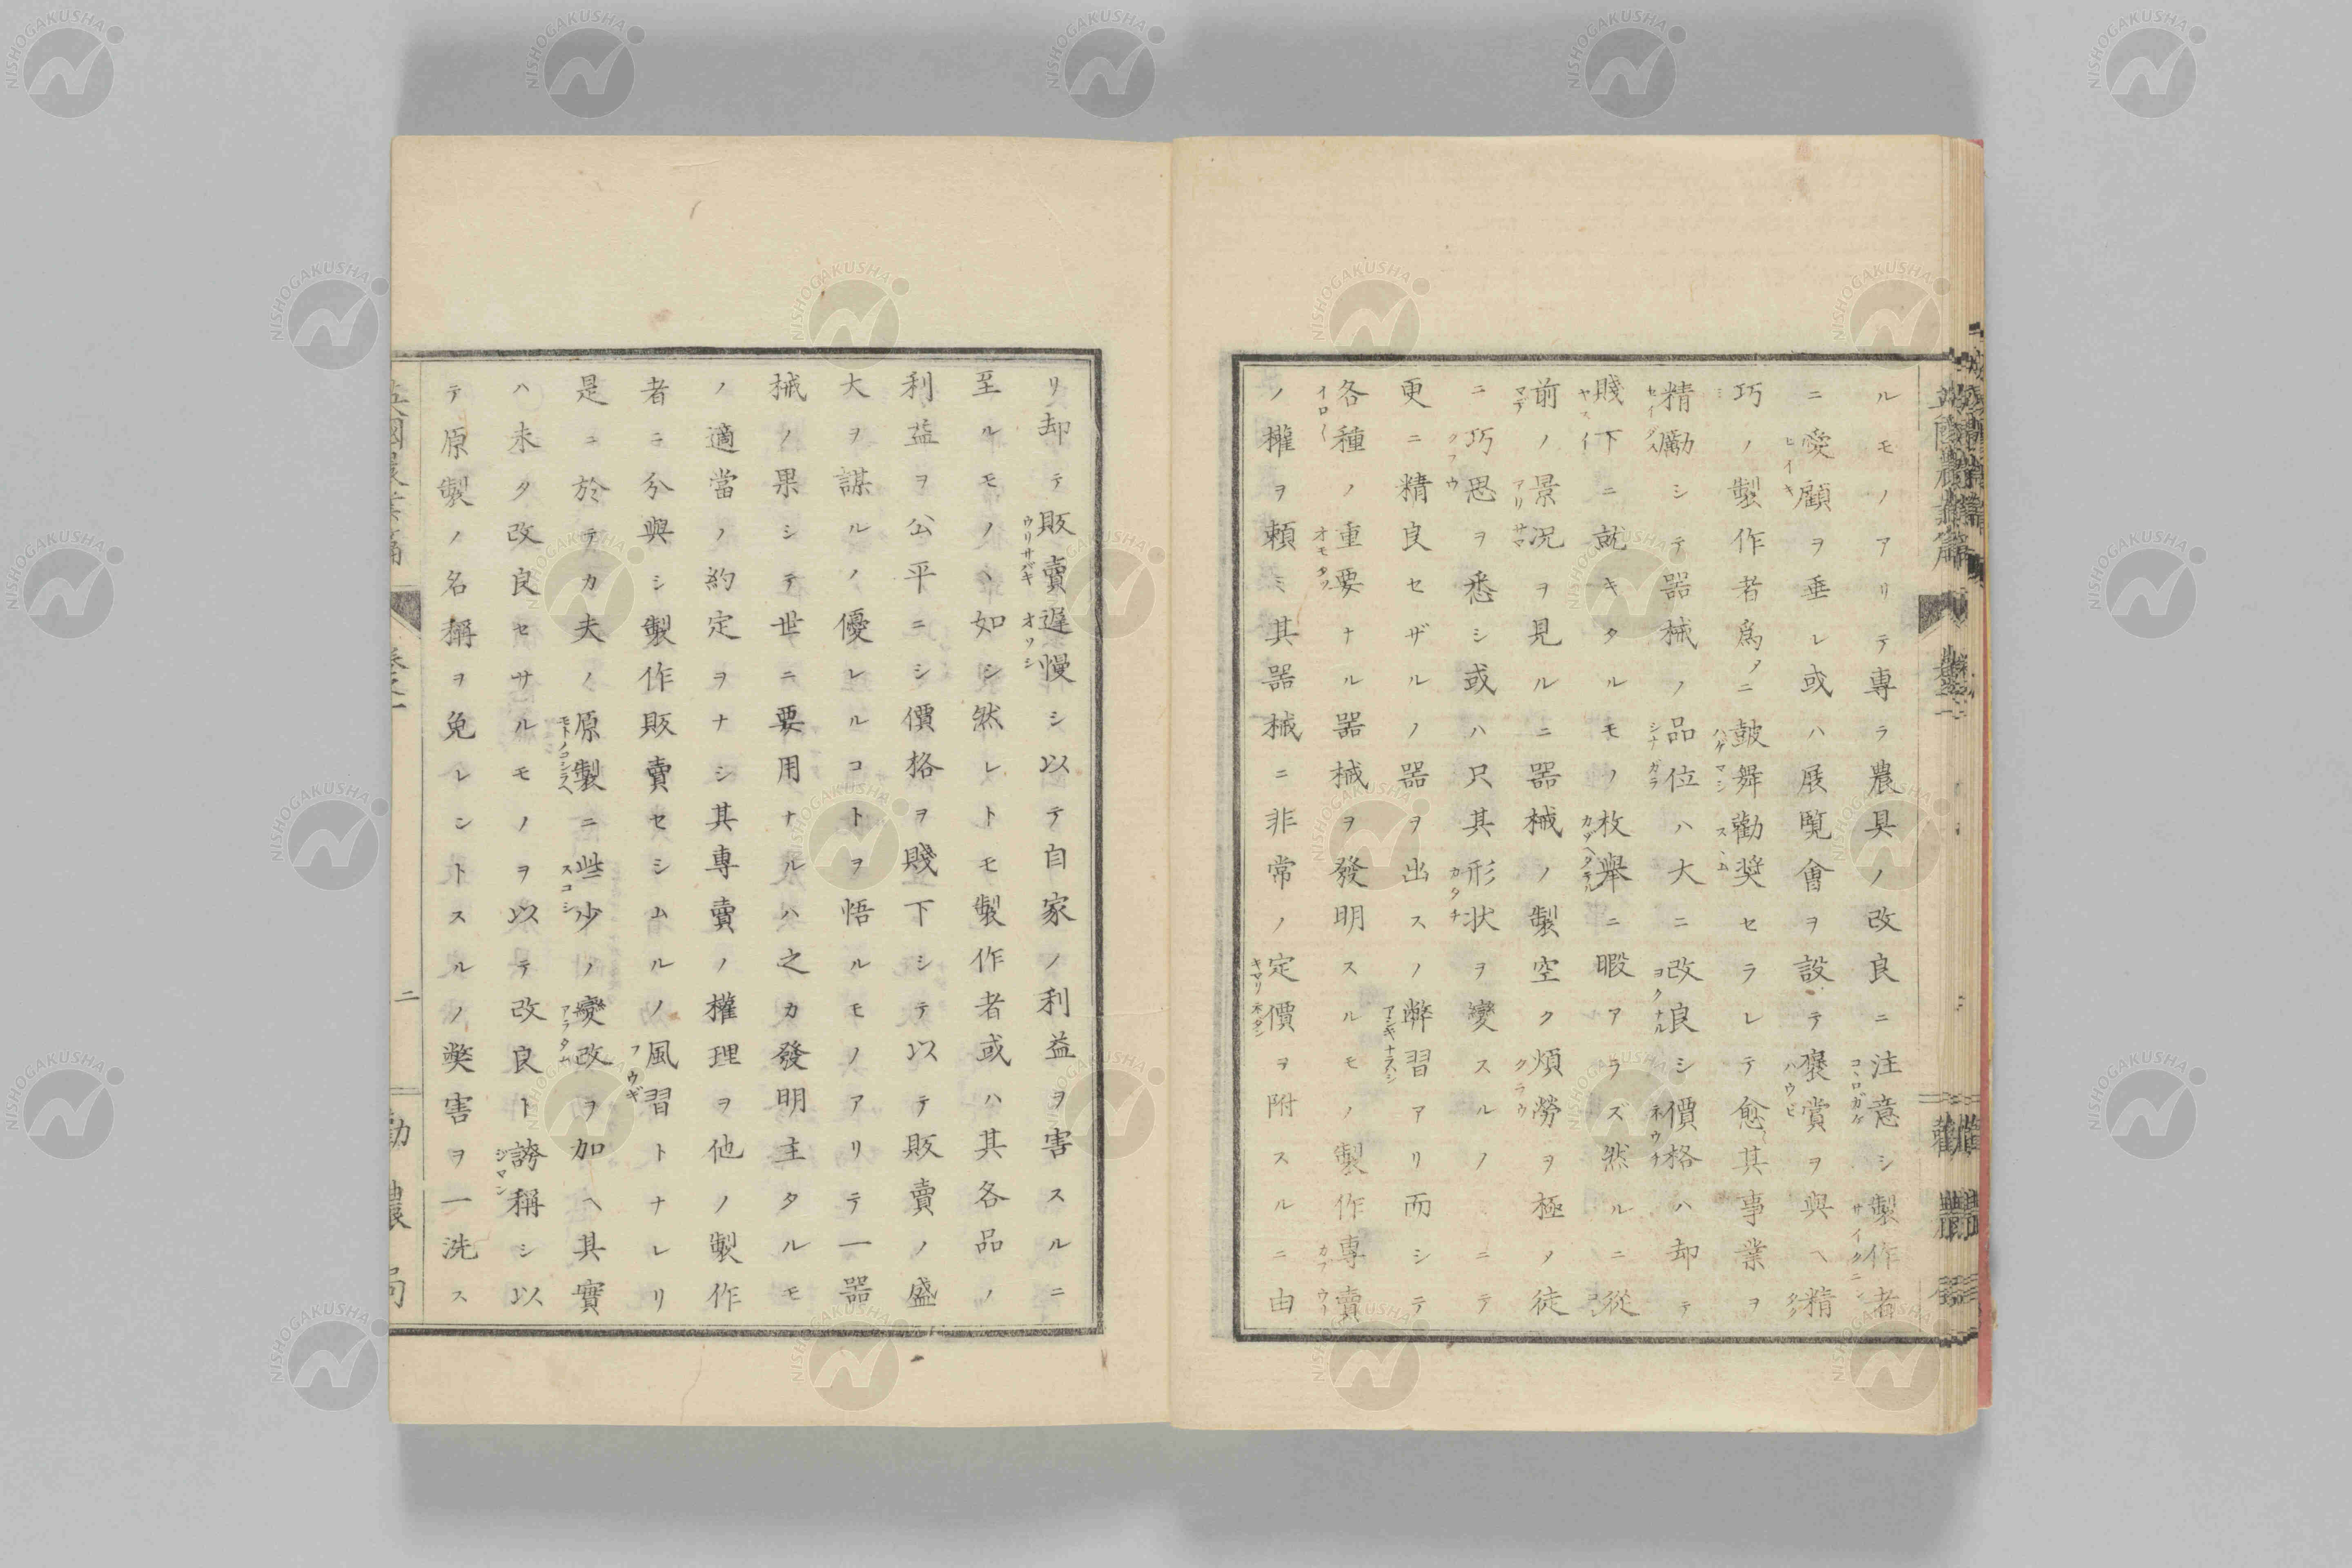 ルモノアリテ專ラ農具ノ改良ニ注意シ製作者
ニ愛顧ヲ垂レ或ハ展覽會ヲ設テ褒賞ヲ與ヘ精
巧ノ製作者爲タニ鼓舞勸奬セラレテ愈其事業ヲ
精勵シテ器械ノ品位ハ大ニ改良シ價格ハ却テ
賤下ニ就キタルモノ枚舉ニ暇アラズ然ルニ從
前ノ景况ヲ見ルニ器械ノ製空ク煩勞ヲ極メ徒
ニ巧思ヲ悉シ或ハ只其形状ヲ變スルノミニテ
更ニ精良セザルノ器ヲ出スノ弊習アリ而シテ
各種ノ重要ナル器械ヲ發明スルモノ製作專賣
ノ權ヲ頼ミ其器械ニ非常ノ定價ヲ附スルニ由
リ却テ販賣遲慢シ以テ自家ノ利益ヲ害スルニ
至ルモノヽ如シ然レトモ製作者或ハ其各品ノ
利益ヲ公平ニシ價格ヲ賤下シテ以テ販賣ノ盛
大ヲ謀ルノ優レルコトヲ悟ルモノアリテ一器
械ノ果シテ世ニ要用ナルハ之カ發明主タルモ
ノ適當ノ約定ヲナシ其專賣ノ權理ヲ他ノ製作
者ニ分與シ製作販賣セシムルノ風習トナレリ
是ニ於テカ夫ノ原製ニ些少ノ變改ヲ加ヘ其實
ハ未タ改良セサルモノヲ以テ改良ト誇稱シ以
テ原製ノ名稱ヲ免レントスルノ弊害ヲ一洗ス
二
勸農局